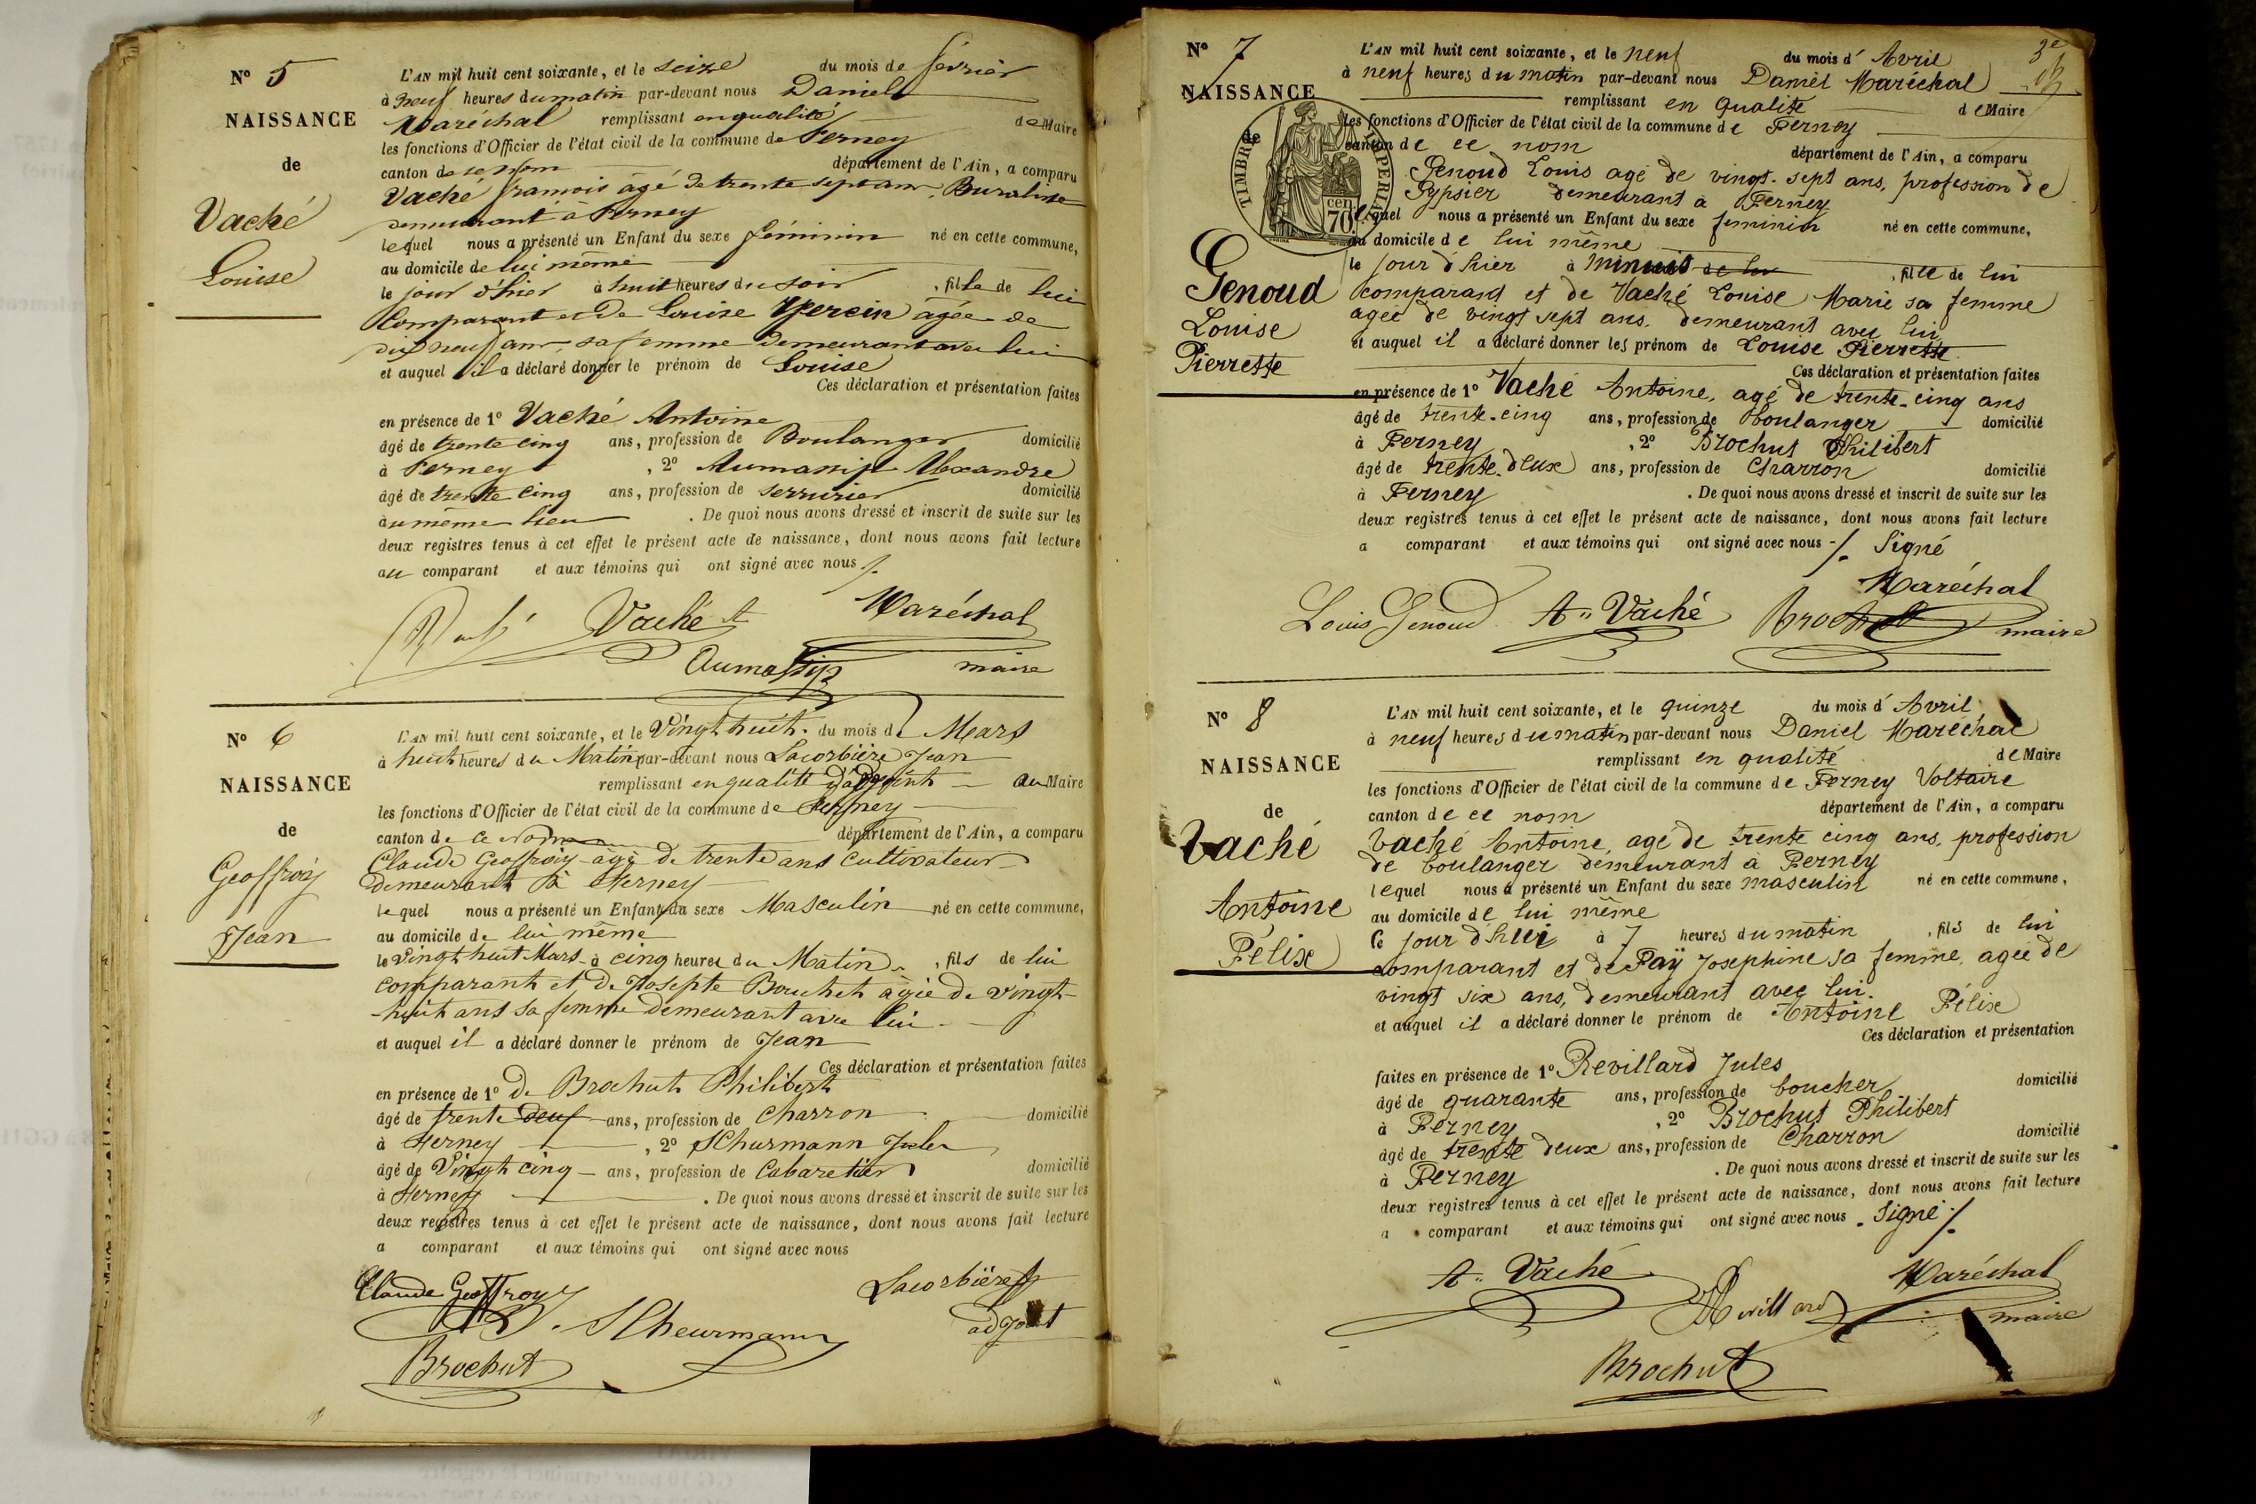 N° 5
NAISSANCE
de
Vaché
Louise
L'AN mil huit cent soixante, et le seize du mois de février
à neuf heures du matin par-devant nous Daniel
Maréchal remplissant en qualité de Maire
les fonctions d'Officier de l'état civil de la commune de Ferney
canton de ce nom département de l'Ain, a comparu
Vaché françois âgé de trente sept ans, Buraliste
demeurant à Ferney
lequel nous a présenté un Enfant du sexe féminin né en cette commune,
au domicile de lui même
le jour d'hier à huit heures du soir, fille de lui
Comparant et de Louise âgée de
dix neuf ans, sa femme demeurant avec lui
et auquel il a déclaré donner le prénom de Louise
Ces déclaration et présentation faites
en présence de 1° Vaché Antoine
âgé de trente cinq ans, profession de Boulanger domicilié
à Ferney, 2° Aumassip Alexandre
âgé de trente cinq ans, profession de serrurier domicilié
au même lieu. De quoi nous avons dressé et inscrit de suite sur les
deux registres tenus à cet effet le présent acte de naissance, dont nous avons fait lecture
au comparant et aux témoins qui ont signé avec nous
Vaché A Maréchal
Aumassip maire
N° 6
NAISSANCE
de
Geoffroy
Jean
L'AN mil huit cent soixante, et le Vingt huit du mois de Mars
à huit heures du Matin par-devant nous Lacorbière Jean
remplissant en qualité d'adjoint au Maire
les fonctions d'Officier de l'état civil de la commune de Ferney
canton de ce nom département de l'Ain, a comparu
Claude Geoffroy âgé de trente ans Cultivateur
demeurant à Ferney
lequel nous a présenté un Enfant du sexe Masculin né en cette commune,
au domicile de lui même
le Vingt huit Mars à cinq heures du Matin, fils de lui
comparant et de Josepte Bouchet âgée de vingt
huit ans sa femme demeurant avec lui
et auquel il a déclaré donner le prénom de Jean
Ces déclaration et présentation faites
en présence de 1° de Brochut Philibert
âgé de trente deux ans, profession de Charron domicilié
à Ferney, 2° SChurmann Jules
âgé de Vingt cinq ans, profession de Cabaretier domicilié
à Ferney. De quoi nous avons dressé et inscrit de suite sur les
deux registres tenus à cet effet le présent acte de naissance, dont nous avons fait lecture
a comparant et aux témoins qui ont signé avec nous
Claude Geoffroy Lacorbière
SCheurmann adjoint
Brochut
N° 7
NAISSANCE
de
TIMBRE IMPERIAL
cen. 70.
Genoud
Louise
Pierrette
L'AN mil huit cent soixante, et le neuf du mois d'Avril
à neuf heures du matin par-devant nous Daniel Maréchal
remplissant en qualité de Maire
les fonctions d'Officier de l'état civil de la commune de Ferney
canton de ce nom département de l'Ain, a comparu
Genoud Louis agé de vingt-sept ans, profession de
Gypsier demeurant à Ferney
lequel nous a présenté un Enfant du sexe feminin né en cette commune,
au domicile de lui même
le jour d'hier à minuit, fille de lui
comparant et de Vaché Louise Marie sa femme
agée de vingt sept ans, demeurant avec lui
et auquel il a déclaré donner les prénom de Louise Pierrette
Ces déclaration et présentation faites
en présence de 1° Vaché Antoine, agé de trente-cinq ans
âgé de trente-cinq ans, profession de boulanger domicilié
à Ferney, 2° Brochut Philibert
âgé de trente-deux ans, profession de Charron domicilié
à Ferney. De quoi nous avons dressé et inscrit de suite sur les
deux registres tenus à cet effet le présent acte de naissance, dont nous avons fait lecture
a comparant et aux témoins qui ont signé avec nous Signé
Maréchal
Louis Genoud A Vaché Brochut maire
N° 8
NAISSANCE
de
Vaché
Antoine
Félix
L'AN mil huit cent soixante, et le quinze du mois d'Avril
à neuf heures du matin par-devant nous Daniel Maréchal
remplissant en qualité de Maire
les fonctions d'Officier de l'état civil de la commune de Ferney Voltaire
canton de ce nom département de l'Ain, a comparu
Vaché Antoine, agé de trente cinq ans, profession
de boulanger demeurant à Ferney
lequel nous a présenté un Enfant du sexe masculin né en cette commune,
au domicile de lui même
Ce jour d'hui à 7 heures du matin, fils de lui
comparant et de Paÿ Josephine sa femme, agée de
vingt six ans, demeurant avec lui.
et auquel il a déclaré donner le prénom de Antoine Félix
Ces déclaration et présentation
faites en présence de 1° Revillard Jules
âgé de quarante ans, profession de boucher domicilié
à Ferney, 2° Brochut Philibert
âgé de trente deux ans, profession de Charron domicilié
à Ferney. De quoi nous avons dressé et inscrit de suite sur les
deux registres tenus à cet effet le présent acte de naissance, dont nous avons fait lecture
a comparant et aux témoins qui ont signé avec nous. Signé
A Vaché Revillard Maréchal
maire
Brochut